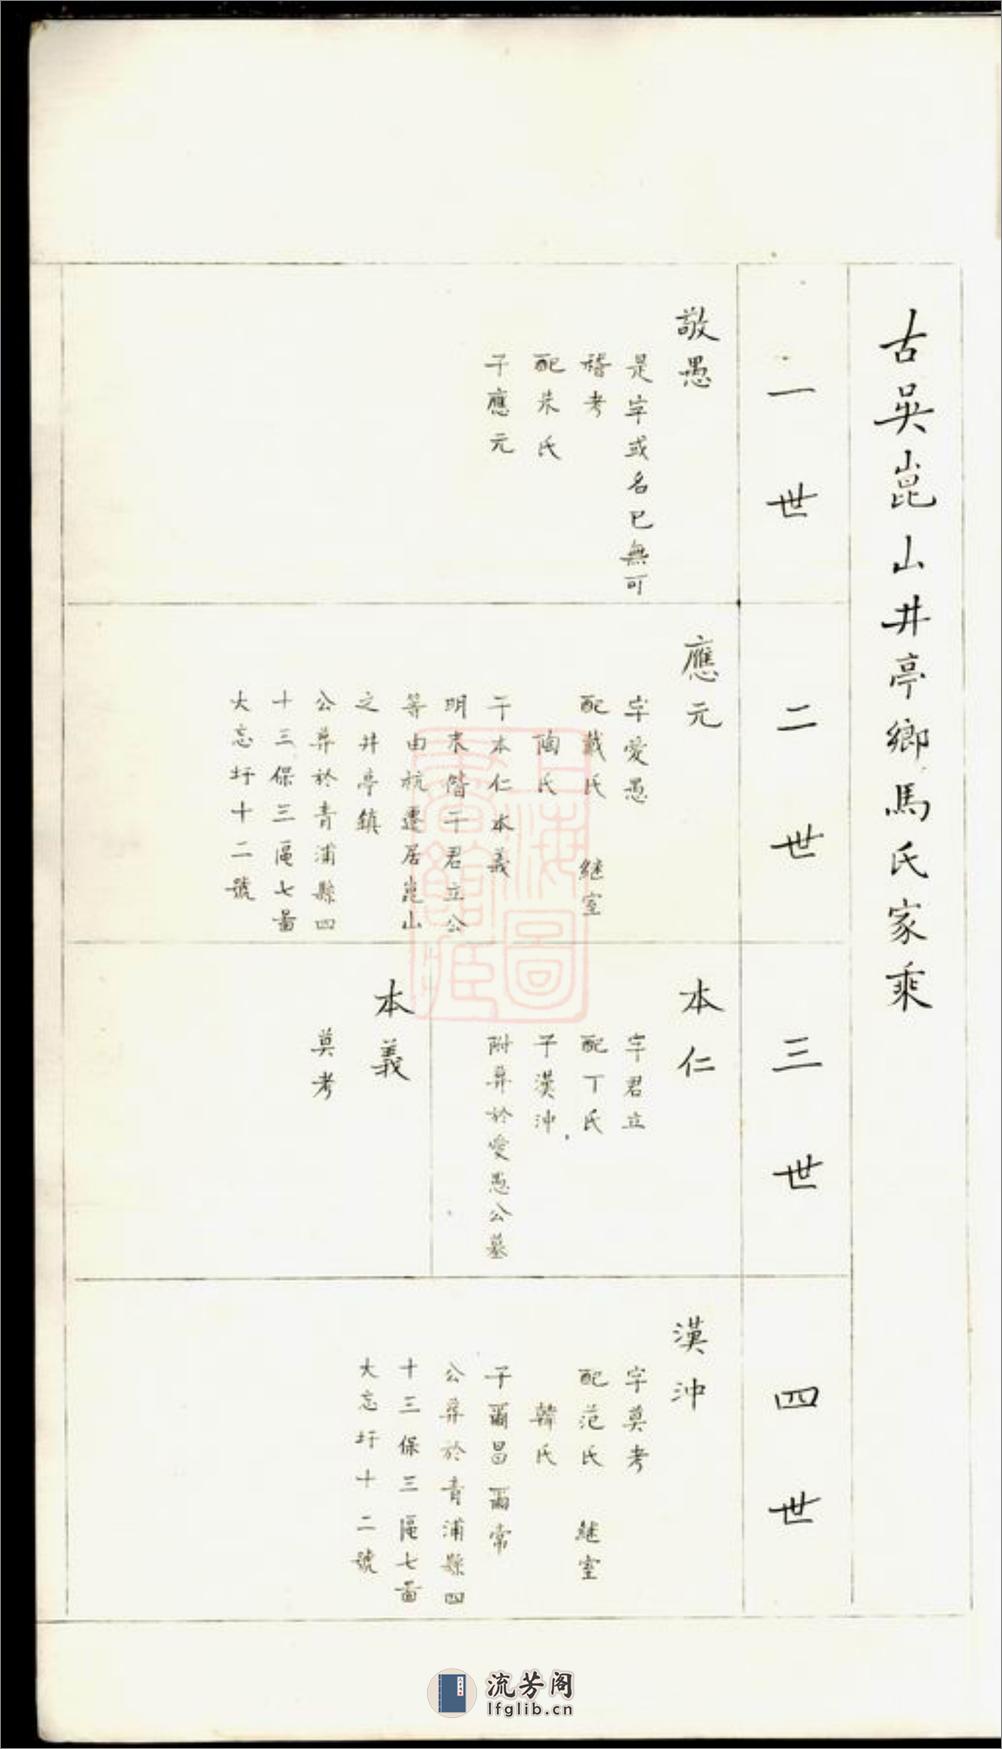 古吳崑山井亭鄉馬氏家乘
一世
敬愚
是字或名已無可
稽考
配朱氏
子應元
二世
應元
字愛愚
配戴氏 繼室
陶氏
子本仁本義
明末偕子君立公
等由杭遷居崑山
之井亭鎮
公葬於青浦縣四
十三保三區七啚
大忘圩十二號
三世
本仁
字君立
配丁氏
子漢沖
附葬於愛愚公墓
本義
莫考
四世
漢沖
字莫考
配范氏 繼室
韓氏
子爾昌爾常
公葬於青浦縣四
十三保三區七啚
大忘圩十二號
上海圖
書館藏
流芳阁
lfglib.cn